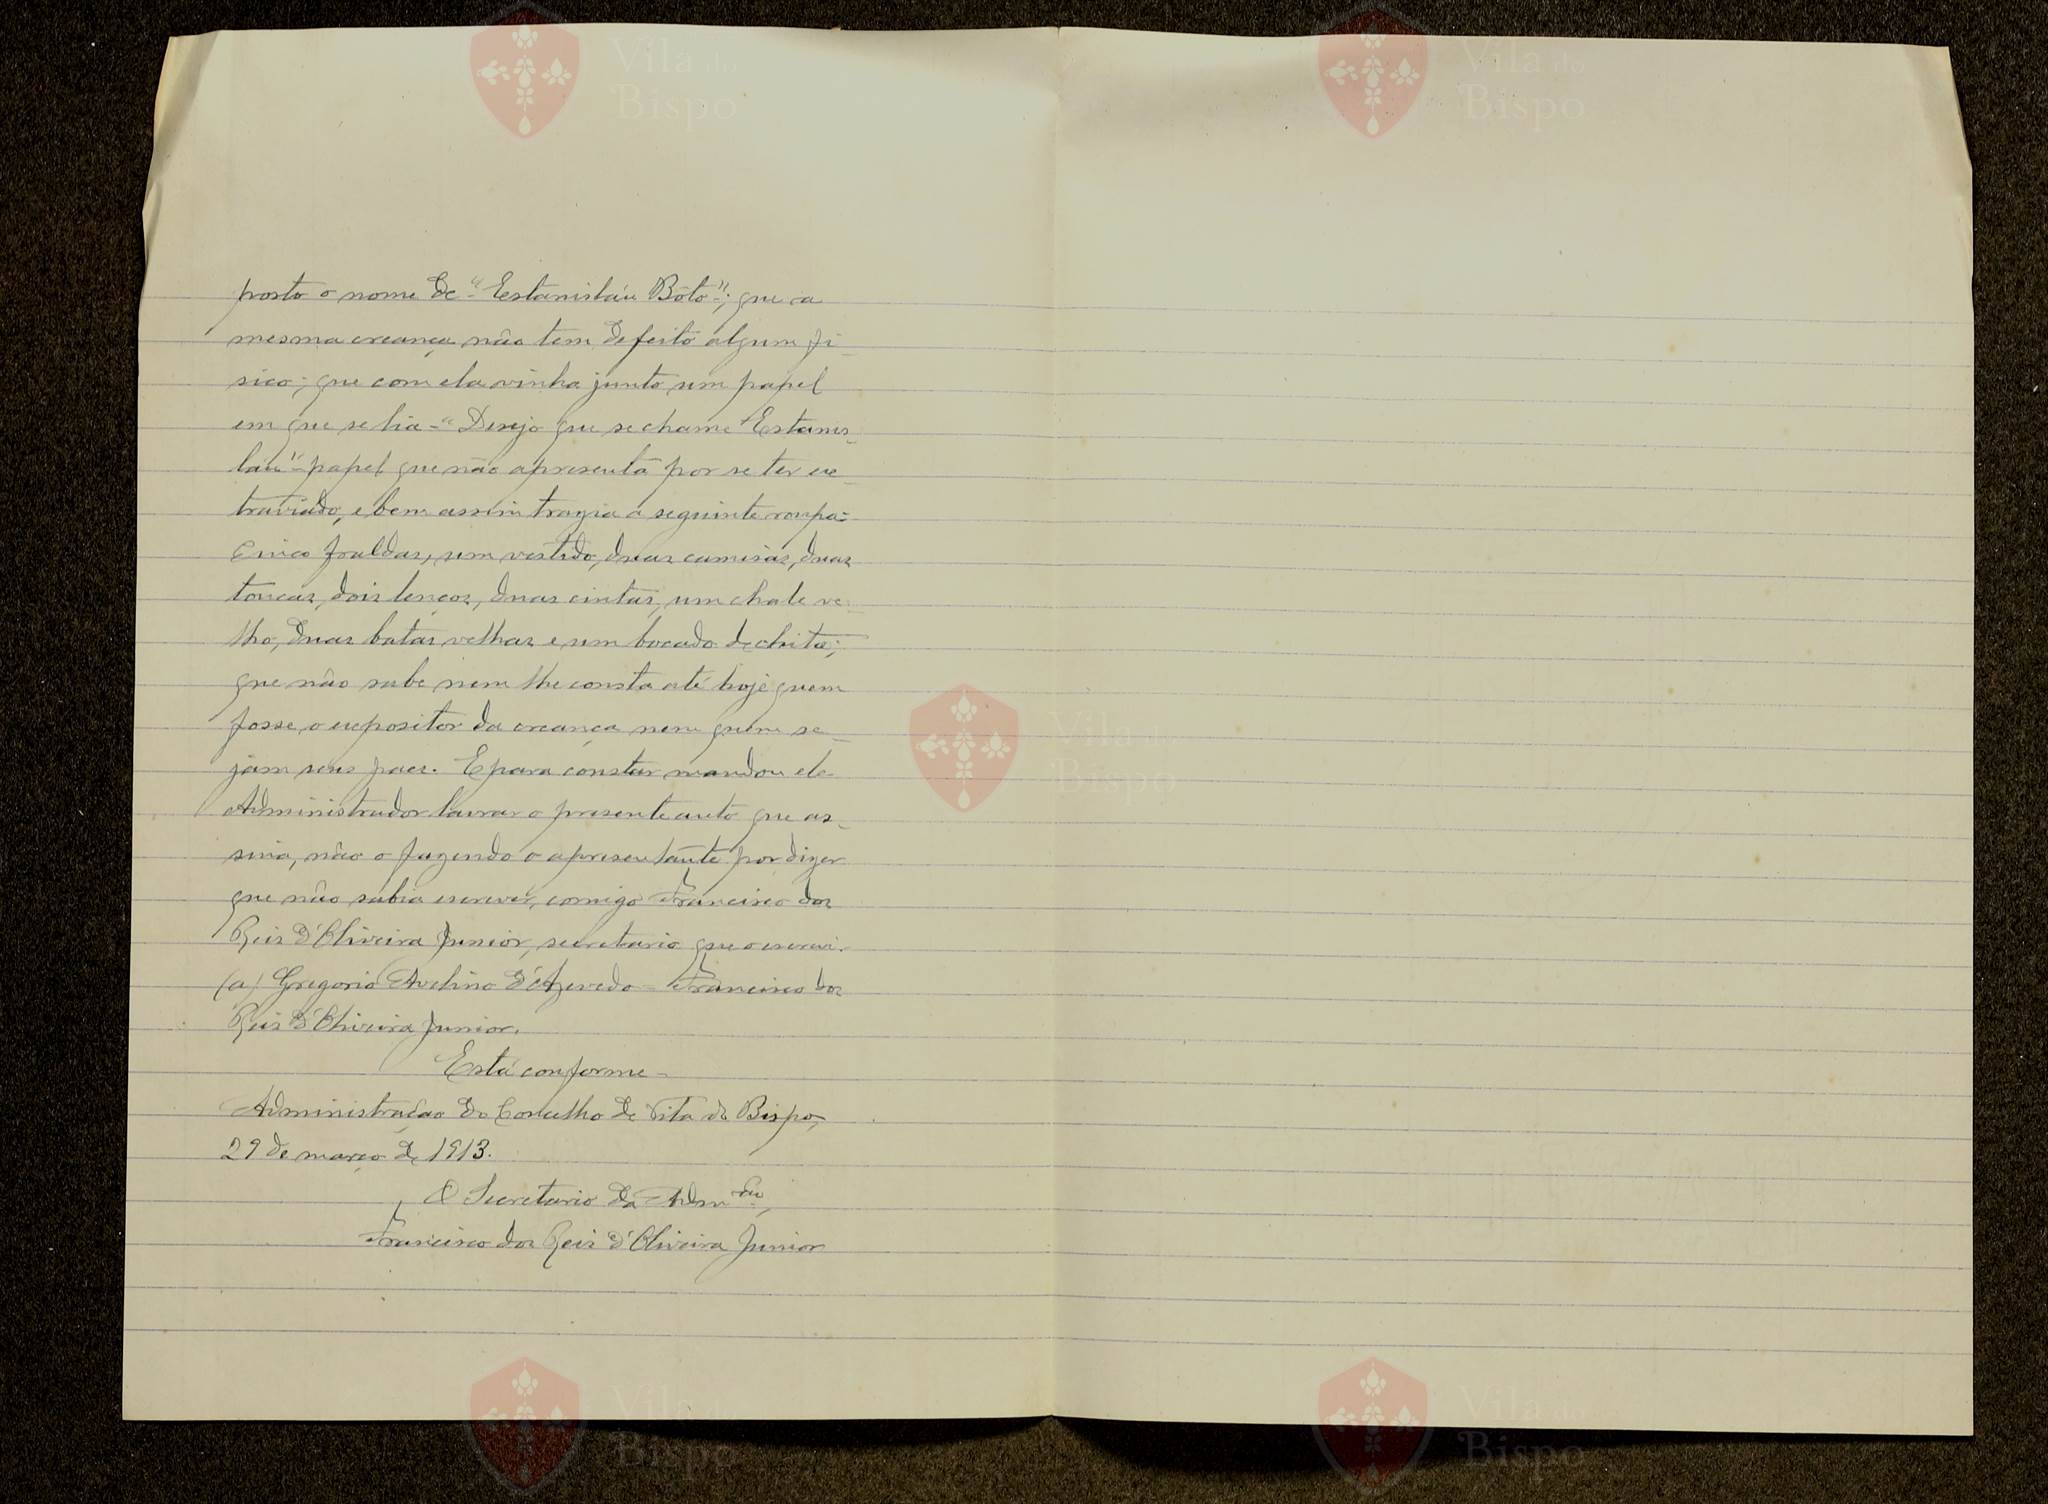 posto o nome de "Estanisláu Bôto"; que a
mesma creança não tem defeito algum fi-
sico; que com ela vinha junto um papel
em que se lia - "Desejo que se chame Estanis-
láu" - papel que não apresenta por se ter ex-
traviado, e bem assim trazia a seguinte roupa:-
Cinco fraldas, um vestido, duas camisas, duas
toucas, dois lenços, duas cintas, um chale ve-
lho, duas batas velhas e um bocado de chita;
que não sabe nem lhe consta até hoje quem
fosse o expositor da creança nem quem se-
jam seus paes. E para constar mandou ele
Administrador lavrar o presente auto que as-
sina, não o fazendo o apresentante por dizer
que não sabia escrever, comigo Francisco dos
Reis d'Oliveira Junior, secretario que o escrevi.
(a) Gregorio Avelino d'Azevedo - Francisco dos
Reis d'Oliveira Junior.
Está conforme -
Administração do Concelho de Vila do Bispo,
29 de março de 1913.
O Secretario da Admᶜᵃᵒ,
Francisco dos Reis d'Oliveira Junior
Vila do
Bispo
Vila do
Bispo
Vila do
Bispo
Vila do
Bispo
Vila do
Bispo